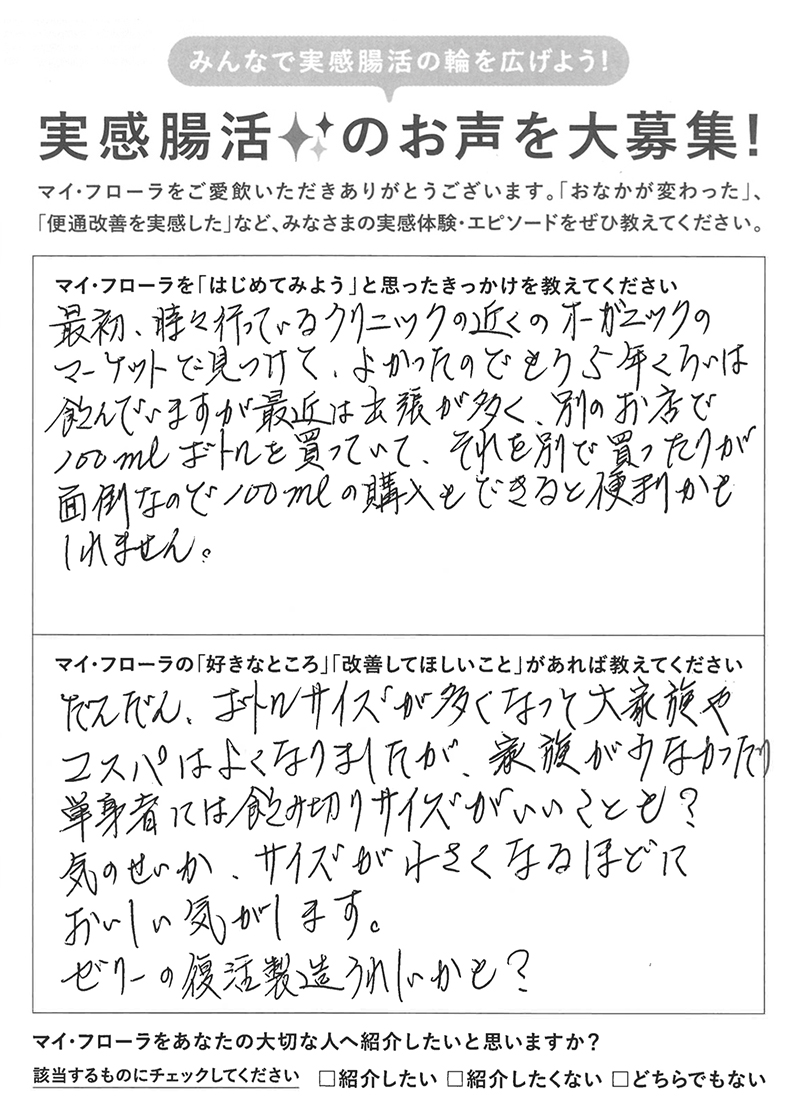 みんなで実感腸活の輪を広げよう!
実感腸活のお声を大募集!
マイ・フローラをご愛飲いただきありがとうございます。「おなかが変わった」、
「便通改善を実感した」など、みなさまの実感体験・エピソードをぜひ教えてください。
マイ・フローラを「はじめてみよう」と思ったきっかけを教えてください
最初、時々行っているクリニックの近くのオーガニックの
マーケットで見つけて、よかったのでもう5年くらいは
飲んでいますが最近は出張が多く、別のお店で
100mlボトルを買っていて、それを別で買ったりが
面倒なので100mlの購入もできると便利かも
しれません。
マイ・フローラの「好きなところ」「改善してほしいこと」があれば教えてください
だんだん、ボトルサイズが多くなって大家族や
コスパはよくなりましたが、家族が少なかったり
単身者には飲み切りサイズがいいことも?
気のせいか、サイズが小さくなるほどに
おいしい気がします。
ゼリーの復活製造うれしいかも?
マイ・フローラをあなたの大切な人へ紹介したいと思いますか?
該当するものにチェックしてください □紹介したい □紹介したくない □どちらでもない